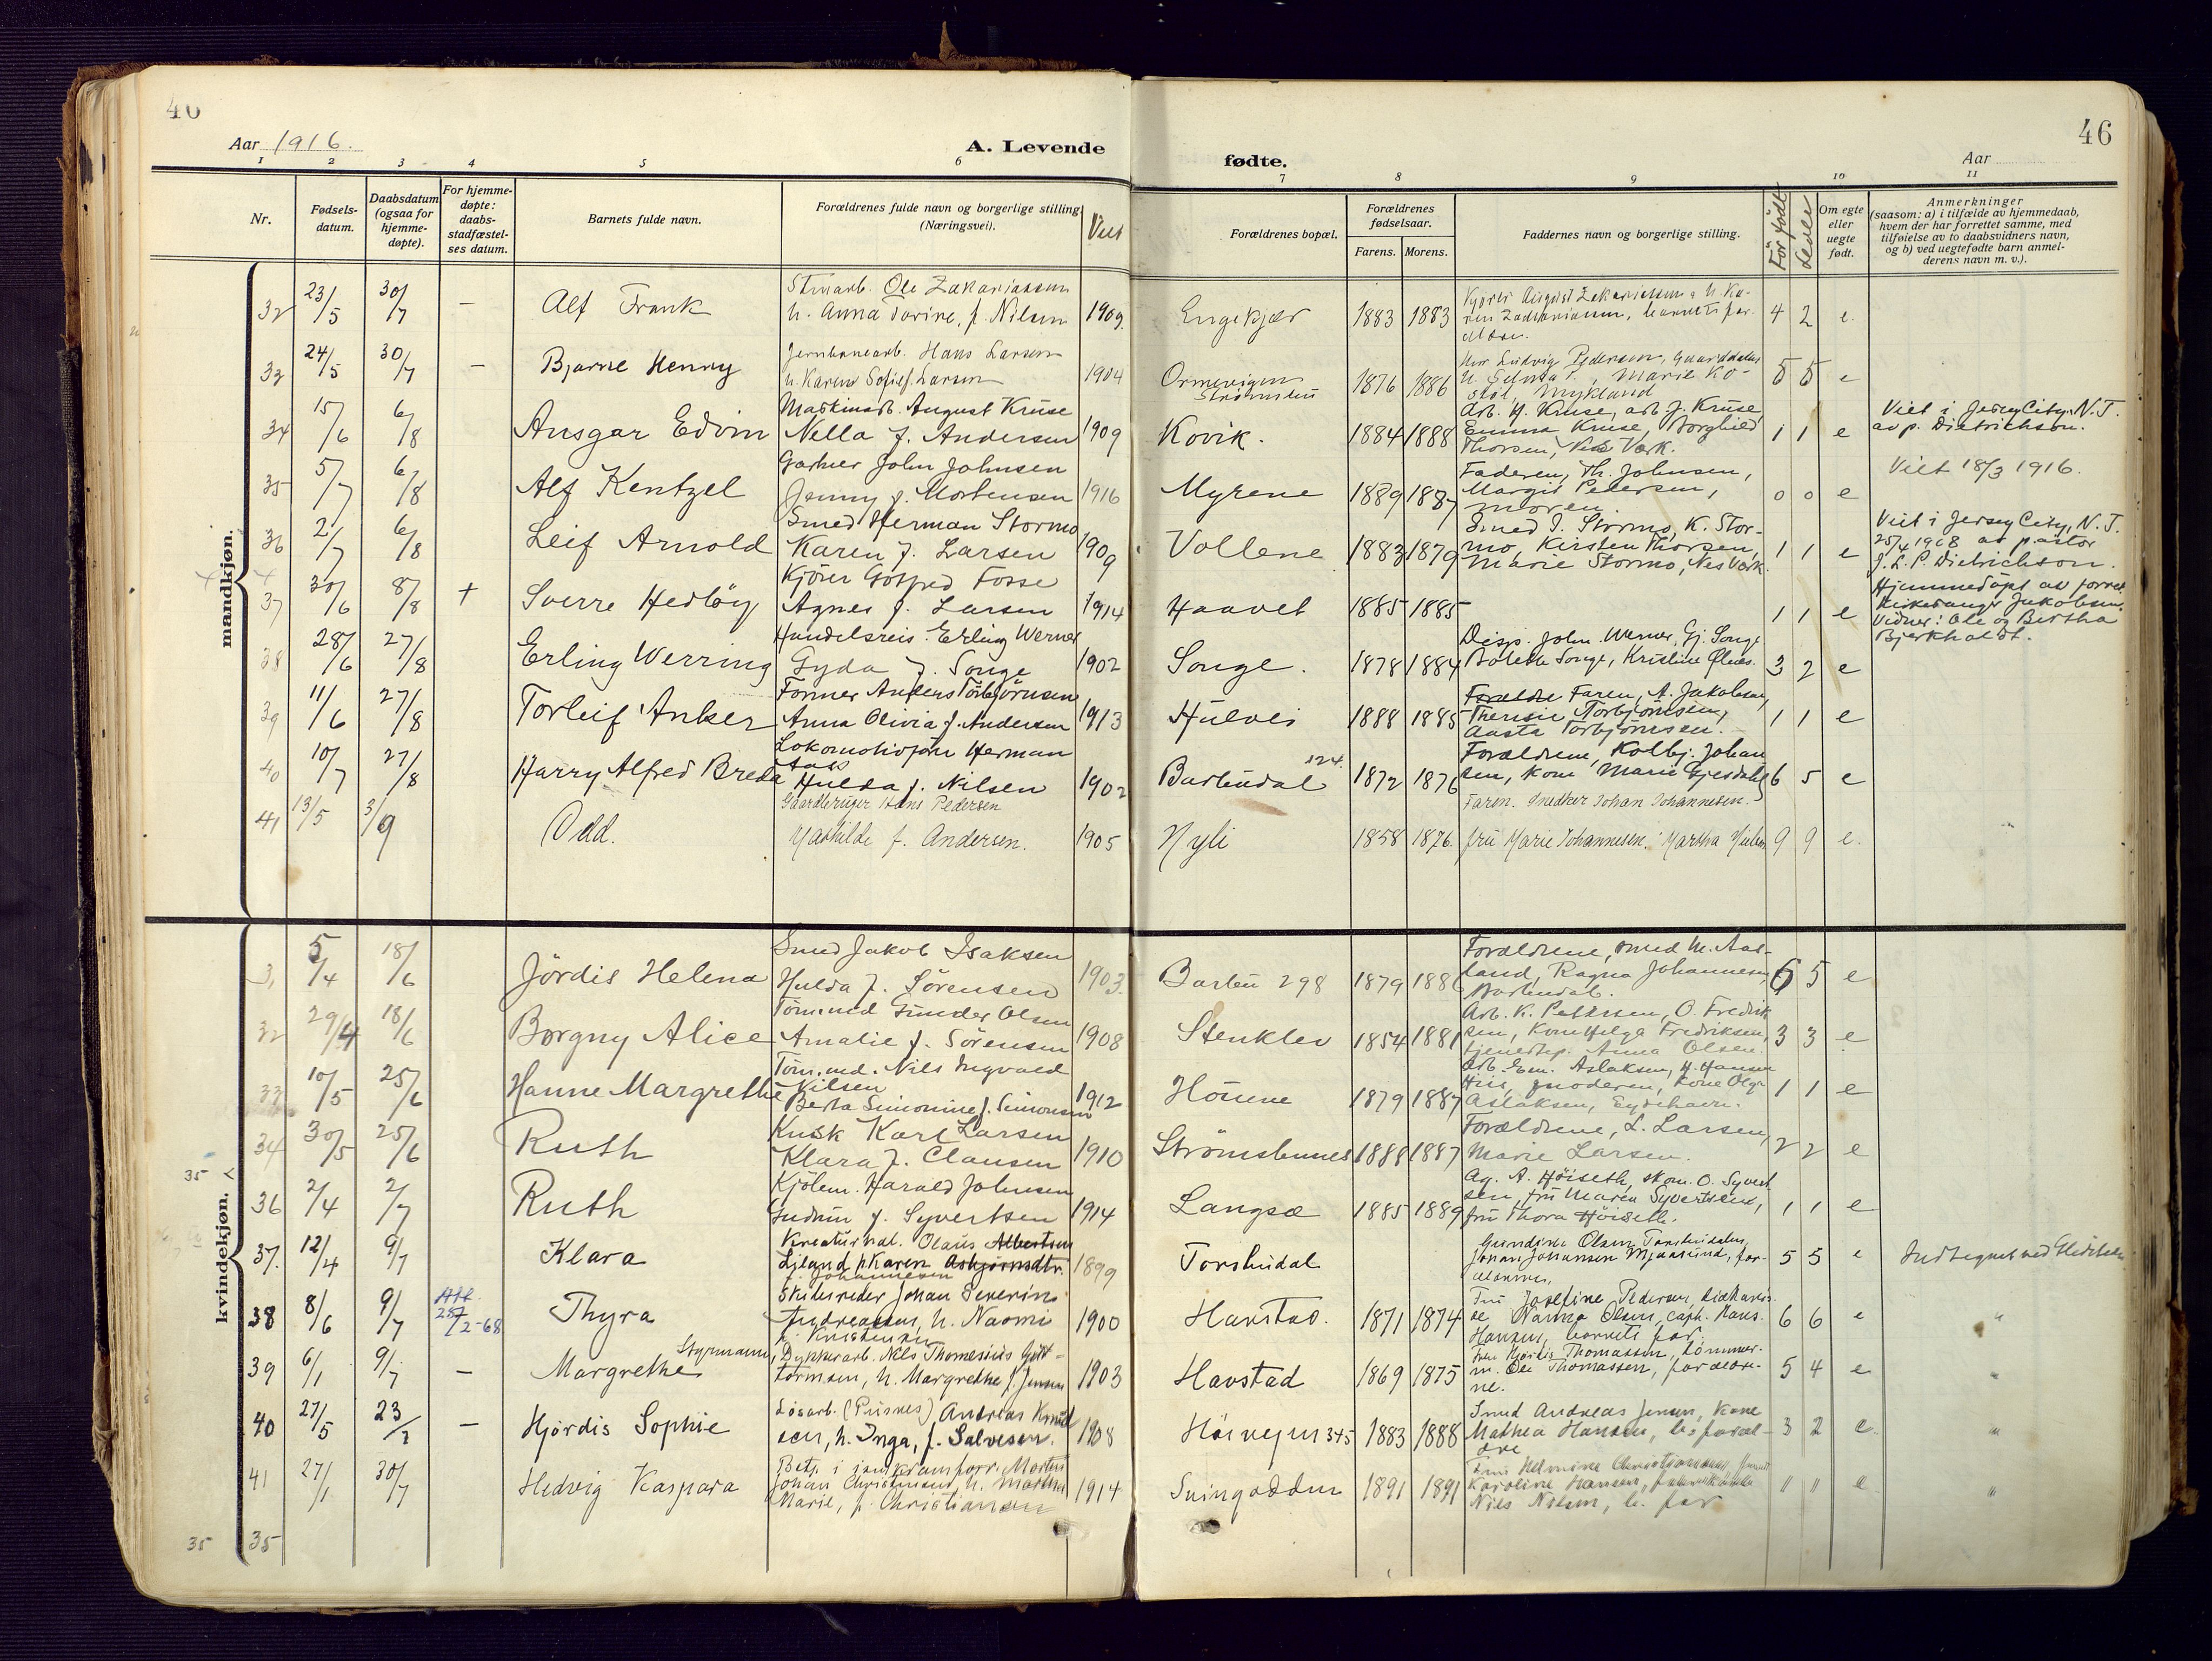 46
46
Aar 1916.
A. Levende fødte.
Aar
1 2 3 4 5 6 7 8 9 10 11
Nr.
Fødsels-datum.
Daabsdatum (ogsaa for hjemme-døpte).
For hjemme-døpte: daabs-stadfæstel-ses datum.
Barnets fulde navn.
Forældrenes fulde navn og borgerlige stilling (Næringsvei).
Viet
Forældrenes bopæl.
Forældrenes fødselsaar.
Farens. Morens.
Faddernes navn og borgerlige stilling.
Før født
Levde
Om egte eller uegte født.
Anmerkninger (saasom: a) i tilfælde av hjemmedaab, hvem der har forrettet samme, med tilføielse av to daabsvidners navn, og b) ved uegtefødte barn anmel-derens navn m. v.).
mandkjøn.
32 23/5 30/7 — Alf Frank
Ole Zakariassen
h. Anna Torine, f. Nilsen 1909. Engekjær 1883 1883 4 2 e.
33 24/5 30/7 — Bjarne Henry
Jernbanearb. Hans Larsen
h. Karen Sofie f. Larsen 1904 Ormevigen 1876 1886 5 5 e
34 15/6 6/8 Ansgar Edvin
Maskinarb. August Kruse
Nella f. Andersen 1909 Kovik. 1884 1888
Arb. H. Kruse, arb J. Kruse
Emma Kruse, Borghild
Thorsen, Nes Værk. 1 1 e
Viet i Jersey City, N.J.
av p. Dietrichson.
35 5/7 6/8 Alf Kentzel
Gartner John Johnsen
Jenny f. Mortensen 1916 Myrene 1889 1887
Faderen, Th. Johnsen,
Margit Pedersen,
moren. 0 0 e
Viet 18/3 1916.
36 2/7 6/8 Leif Arnold
Smed Herman Stormo
Karen f. Larsen 1909 Vollene 1883 1879
Smed I. Stormo, K. Stor-
mo, Kirsten Thorsen,
Marie Stormo, Nes Værk. 1 1 e
Viet i Jersey City, N.J.
25/4 1908 av pastor
J. L. P. Dietrichson.
37 30/6 8/8 + Sverre Hedløy
Kjører Gotfred Fosse
Agnes f. Larsen 1914 Haavet 1885 1885 1 1 e
Hjemmedøpt av forret.
Kirkesanger Jakobsen.
Vidner: Ole og Bertha
Bjerkholdt.
38 28/6 27/8 Erling Werring
Handelsreis. Erling Werner
Gyda f. Songe 1902 Songe. 1878 1884
Disp. John Werner, Gj. Songe
Bolette Songe, Kristine 3 2 e
39 11/6 27/8 Torleif Anker
Former Anders Torbjørnsen
Anna Olivia f. Andersen 1913 Hulvei 1888 1885
Forældre Faren, A. Jakobsen,
Theresie Torbjørnsen,
Aasta Torbjørnsen. 1 1 e
40 10/7 27/8 Harry Alfred Breda
Herman
Aas
Hulda f. Nilsen 1902 Barbudal 124. 1872 1876
Forældrene, Kolbj. Johan
sen, kone Marie Gjesdahl 6 5 e
41 13/5 3/9 Odd.
Gaardbruger Hans Pedersen
Mathilde f. Andersen. 1905 Nyli 1858 1876.
Faren. Snedker Johan Johannesen.
fru Marie Johannesen. Martha 9 9 e.
kvindekjøn.
31 5/4 18/6 Jördis Helena
Smed Jakob Isaksen
Hulda f. Sörensen 1903. Barbu 298 1879
Forældrene, smed M. Aas-
land, Ragna Johannesen,
Barbudal. 6 5 e
32 29/4 18/6 Borgny Alice
Töm.md Gunder Olsen
Amalie f. Sörensen 1908 Stenklev 1854 1881
Arb. K. Pettersen, O. Fredrik
sen, Kone Helga Fredriksen,
tjenestep. Anna Olsen. 3 3 e
33 10/5 25/6 Hanne Margrethe
Töm.md. Nils Ingvald
Nilsen
Berta Simonine f. Simonsen 1912 1879 1887
Arb. Em. Aslaksen, H. Hansen
His, moderen, Kone Olga
Aslaksen, Eydehavn. 1 1 e
34 30/5 25/6 Ruth
Kusk Karl Larsen
Klara f. Clausen 1910 Strömsbunes 1888 1887
Forældrene, L. Larsen,
Marie Larsen. 2 2 e
35
36 2/4 2/7 Ruth
Kjölem. Harald Johnsen
Gudrun f. Syvertsen 1914 Langsæ 1885 1889
Ag. A. Höiseth, skom. O. Syvert
sen, fru Maren Syvertsen,
fru Thora Höiseth. 1 1 e
37. 12/4 9/7 Klara
Kreaturhdl. Olaus Albertsen
Liland h Karen Asbjørnsdtr.
f. Johannesen 1899 Torsbudal
Gundine Olsen, Torsbudalen,
Johan Johansen Mjaasund, for-
ældrene. 5 5 e
Indtegnet ved
38 8/6 9/7 Att. 25/2-68 Thyra
Skibsreder Johan Severin
Andreassen, h. Naomi
f. Kristensen 1900 Havstad. 1871 1874
Fru Josefine Pedersen,
Nanna Olsen, capt. Hans
Hansen, barnets far. 6 6 e "
39 6/1 9/7 — Margrethe
Styrmann, Dykkerarb. Nils Thomesius Gutt-
ormsen, h. Margrethe f. Jensen 1903 Havstad 1869 1875
Fru Hjördis Thomassen, tömmer-
m. Ole Thomassen, forældre-
ne. 5 4 e "
40 27/5 23/7 — Hjördis Sophie
Løsarb. (Pusnes) Andreas Knud
sen, h. Inga, f. Salvesen. 1908 Höivejen 345 1883 1888
Smed Andreas Jensen, Kone
Mathea Hansen, b.s foræl-
dre 3 2 e. "
41 27/1 30/7 Hedvig Kaspara
Betj. i jernkramforr. Morten
Johan Christensen, h. Martha
Marie, f. Christiansen 1914 Svingodden 1891 1891
Karoline Hansen,
Nils Nilsen, b. far " " e "
35 35